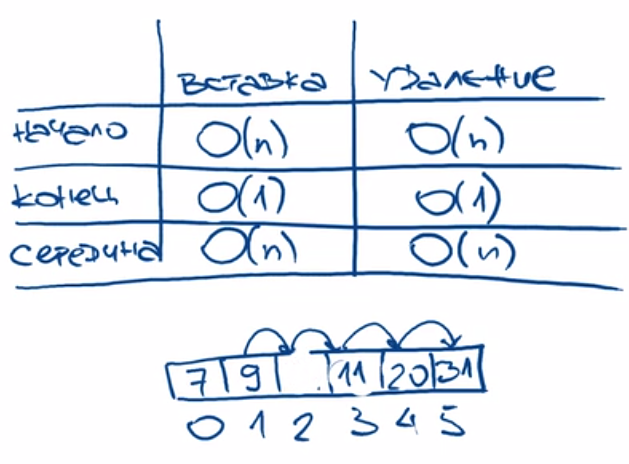 вставка удаление
начало O(n) O(n)
конец O(1) O(1)
середина O(n) O(n)
7 9 11 20 31
0 1 2 3 4 5